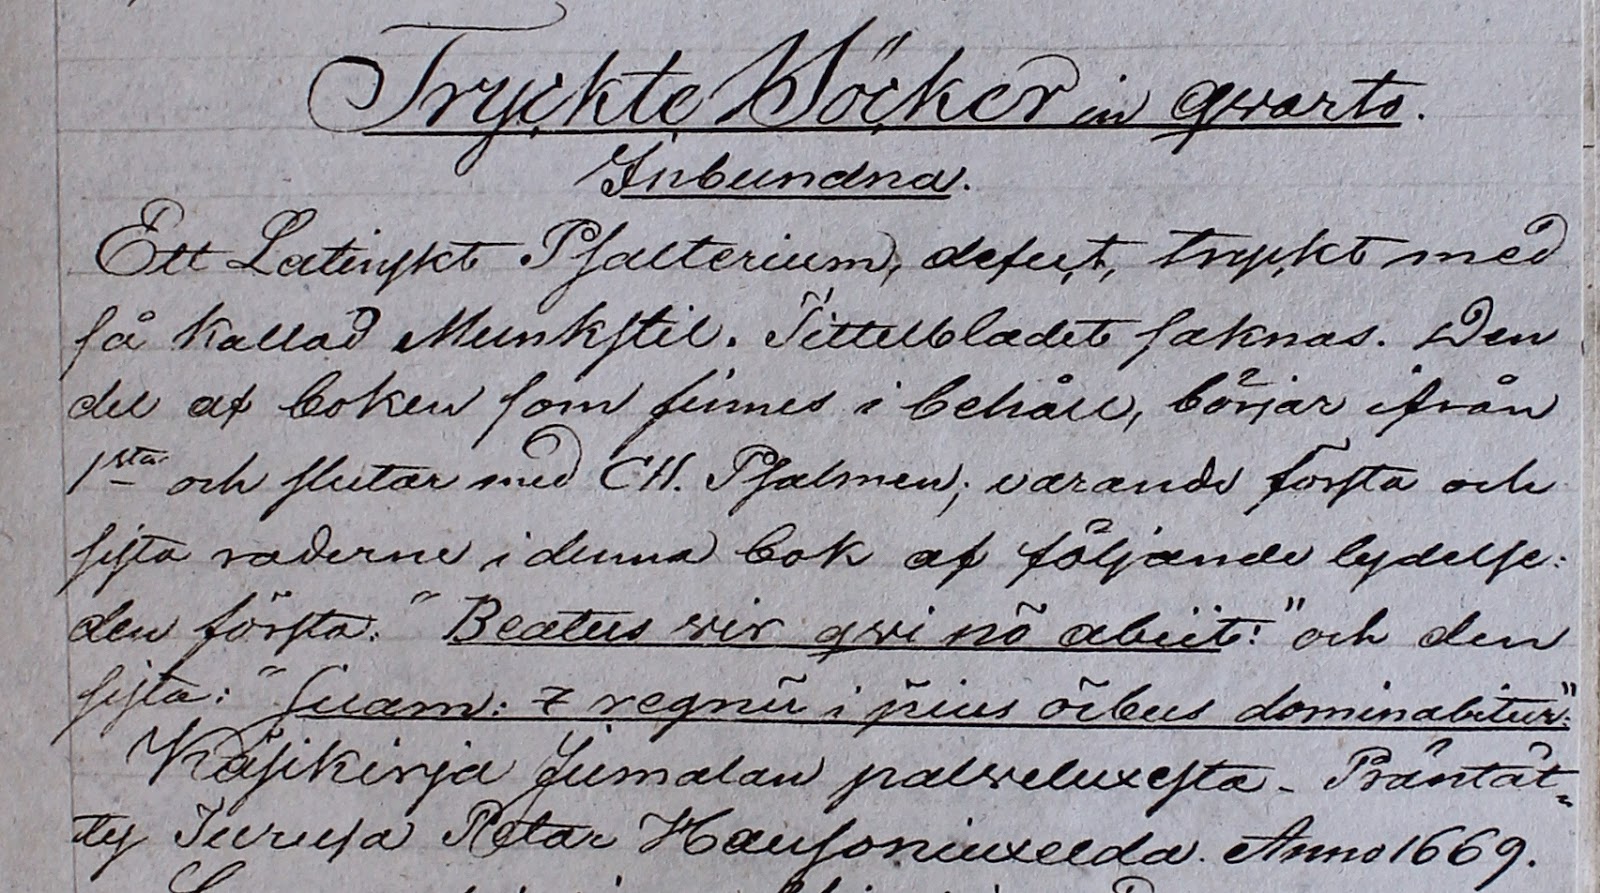 Tryckte Böcker in qwarto.
Inbundna.
Ett Latinskt Psalterium, defect, tryckt med
så kallad Munkstil. Tittelbladet saknas. Den
del af boken som finnes i behåll, börjar ifrån
1sta och slutar med CII. Psalmen; varande första och
sista raderne i denna bok af följande lydelse:
den första: "Beatus vir qwi nō abiit:" och den
sista: "suam: ⁊ regnū i p̄ius ōibus dominabitur:"
Käsikirja Jumalan palweluxesta - Präntät-
ty Turusa Petar Hansoniuxelda. Anno 1669.